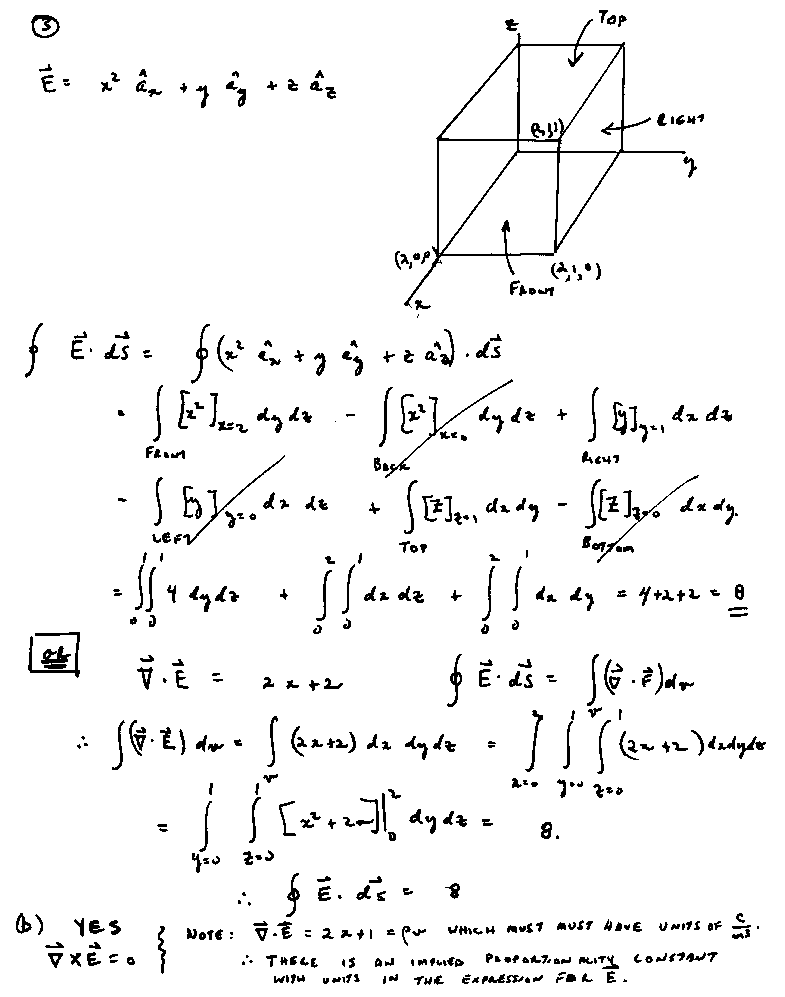 ③
E⃗ = x² âx + y ây + z âz
z
TOP
(2,1,1)
RIGHT
y
(2,0,0)
(2,1,0)
FRONT
x
∮ E⃗ · dS⃗ = ∮ (x² âx + y ây + z âz) · dS⃗
= ∫ [x²]x=2 dy dz − ∫ [x²]x=0 dy dz + ∫ [y]y=1 dx dz
FRONT BACK RIGHT
− ∫ [y]y=0 dx dz + ∫ [z]z=1 dx dy − ∫ [z]z=0 dx dy.
LEFT TOP BOTTOM
= ∫₀¹ ∫₀¹ 4 dy dz + ∫₀² ∫₀¹ dx dz + ∫₀² ∫₀¹ dx dy = 4+2+2 = 8
OR
∇⃗ · E⃗ = 2x+2 ∮ E⃗ · dS⃗ = ∫v (∇⃗ · F⃗) dv
∴ ∫ (∇⃗ · E⃗) dv = ∫v (2x+2) dx dy dz = ∫x=0² ∫y=0¹ ∫z=0¹ (2x+2) dx dy dz
= ∫y=0¹ ∫z=0¹ [x² + 2x]|₀² dy dz = 8.
∴ ∮ E⃗ · dS⃗ = 8
(b) YES
∇⃗ × E⃗ = 0
NOTE: ∇⃗ · E⃗ = 2x+1 = ρv WHICH MUST MUST HAVE UNITS OF C/m³.
∴ THERE IS AN IMPLIED PROPORTIONALITY CONSTANT
WITH UNITS IN THE EXPRESSION FOR E⃗.